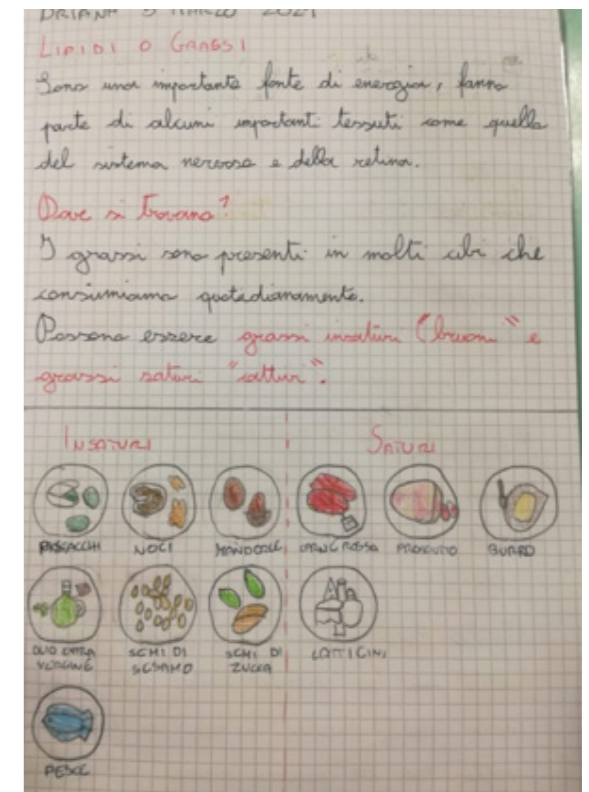 BRIANA 3 MARZO 2021
LIPIDI O GRASSI
Sono una importante fonte di energia, fanno
parte di alcuni importanti tessuti come quello
del sistema nervoso e della retina.
Dove si trovano?
I grassi sono presenti in molti cibi che
consumiamo quotidianamente.
Possono essere grassi insaturi "buoni" e
grassi saturi "cattivi".
INSATURI SATURI
PISTACCHI NOCI MANDORLE CARNE ROSSA PROSCIUTTO BURRO
OLIO EXTRA VERGINE SEMI DI SESAMO SEMI DI ZUCCA LATTICINI
PESCE